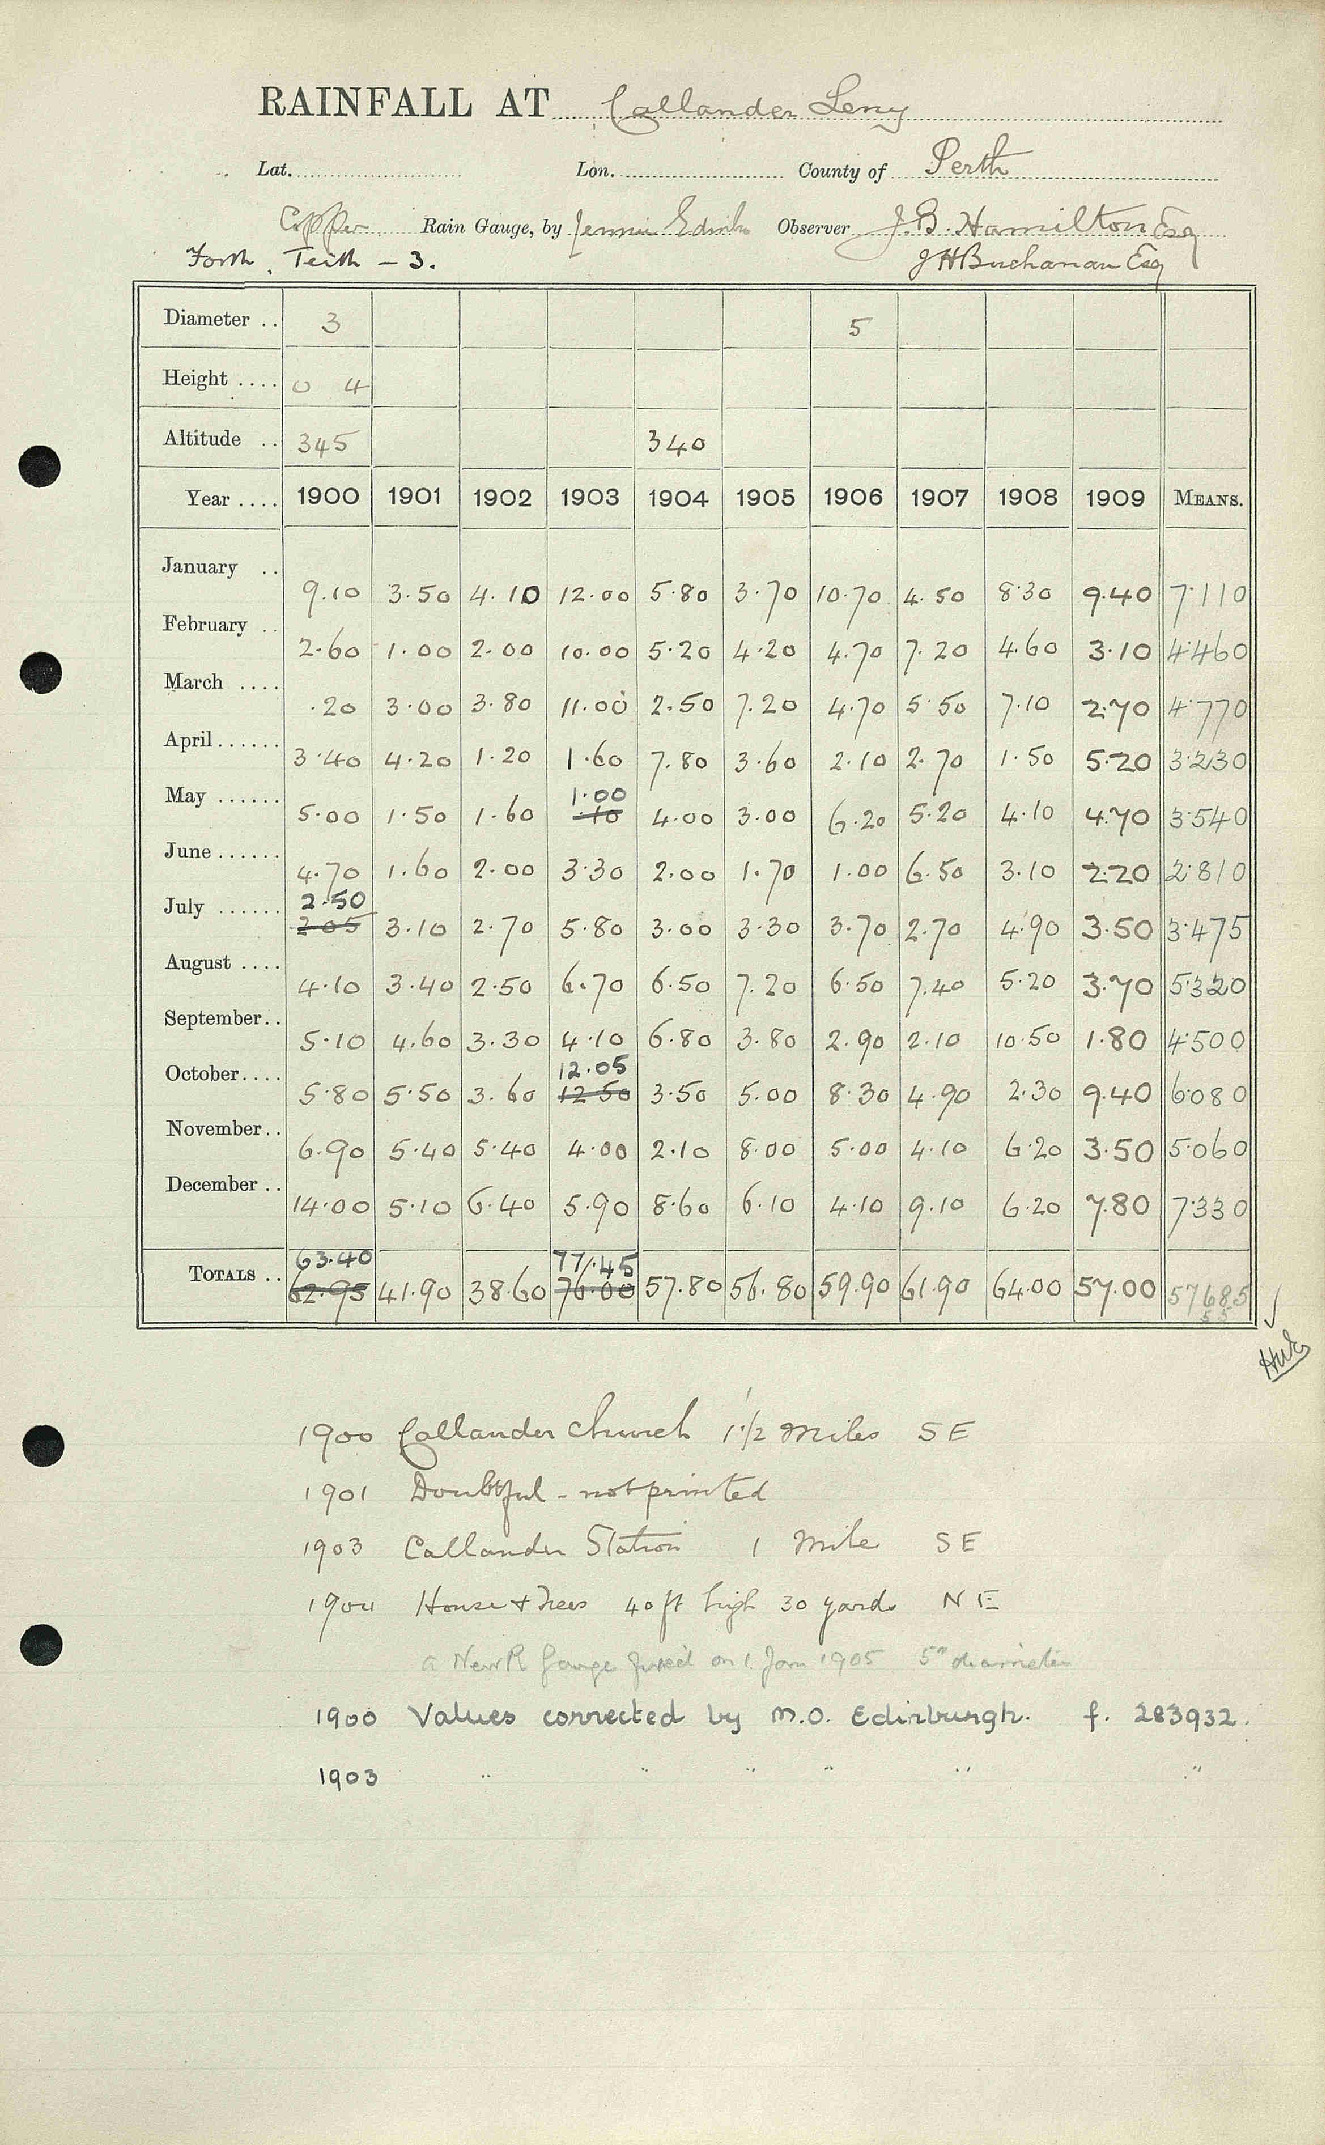 RAINFALL AT Callander Leny
Lat. Lon. County of Perth
Copper Rain Gauge, by Observer J. B. Hamilton Esq
Forth. Teith - 3. J H Buchanan Esq
Diameter .. 3 5
Height .... 0 4
Altitude .. 345 340
Year .... 1900 1901 1902 1903 1904 1905 1906 1907 1908 1909 MEANS.
January .. 9.10 3.50 4.10 12.00 5.80 3.70 10.70 4.50 8.30 9.40 7.110
February .. 2.60 1.00 2.00 10.00 5.20 4.20 4.70 7.20 4.60 3.10 4.460
March .... .20 3.00 3.80 11.00 2.50 7.20 4.70 5.50 7.10 2.70 4.770
April...... 3.40 4.20 1.20 1.60 7.80 3.60 2.10 2.70 1.50 5.20 3.230
1.00
May ...... 5.00 1.50 1.60 .10 4.00 3.00 6.20 5.20 4.10 4.70 3.540
June...... 4.70 1.60 2.00 3.30 2.00 1.70 1.00 6.50 3.10 2.20 2.810
2.50
July ...... 2.05 3.10 2.70 5.80 3.00 3.30 3.70 2.70 4.90 3.50 3.475
August .... 4.10 3.40 2.50 6.70 6.50 7.20 6.50 7.40 5.20 3.70 5.320
September.. 5.10 4.60 3.30 4.10 6.80 3.80 2.90 2.10 10.50 1.80 4.500
12.05
October.... 5.80 5.50 3.60 12.50 3.50 5.00 8.30 4.90 2.30 9.40 6.080
November.. 6.90 5.40 5.40 4.00 2.10 8.00 5.00 4.10 6.20 3.50 5.060
December .. 14.00 5.10 6.40 5.90 8.60 6.10 4.10 9.10 6.20 7.80 7.330
63.40 77.45
TOTALS .. 62.95 41.90 38.60 76.00 57.80 56.80 59.90 61.90 64.00 57.00 57.685
1900 Callander Church 1 1/2 Miles SE
1901 Doubtful - not printed
1903 Callander Station 1 Mile SE
1904 House + Trees 40 ft high 30 yards NE
a New R Gauge fixed on 1 Jan 1905 5" diameter
1900 Values corrected by M.O. Edinburgh. f. 283932.
1903 " " " " " "